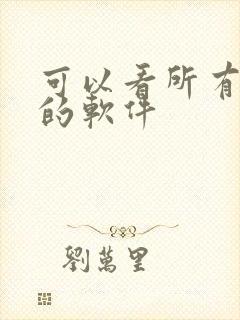 可以看所有
的軟件
劉萬里